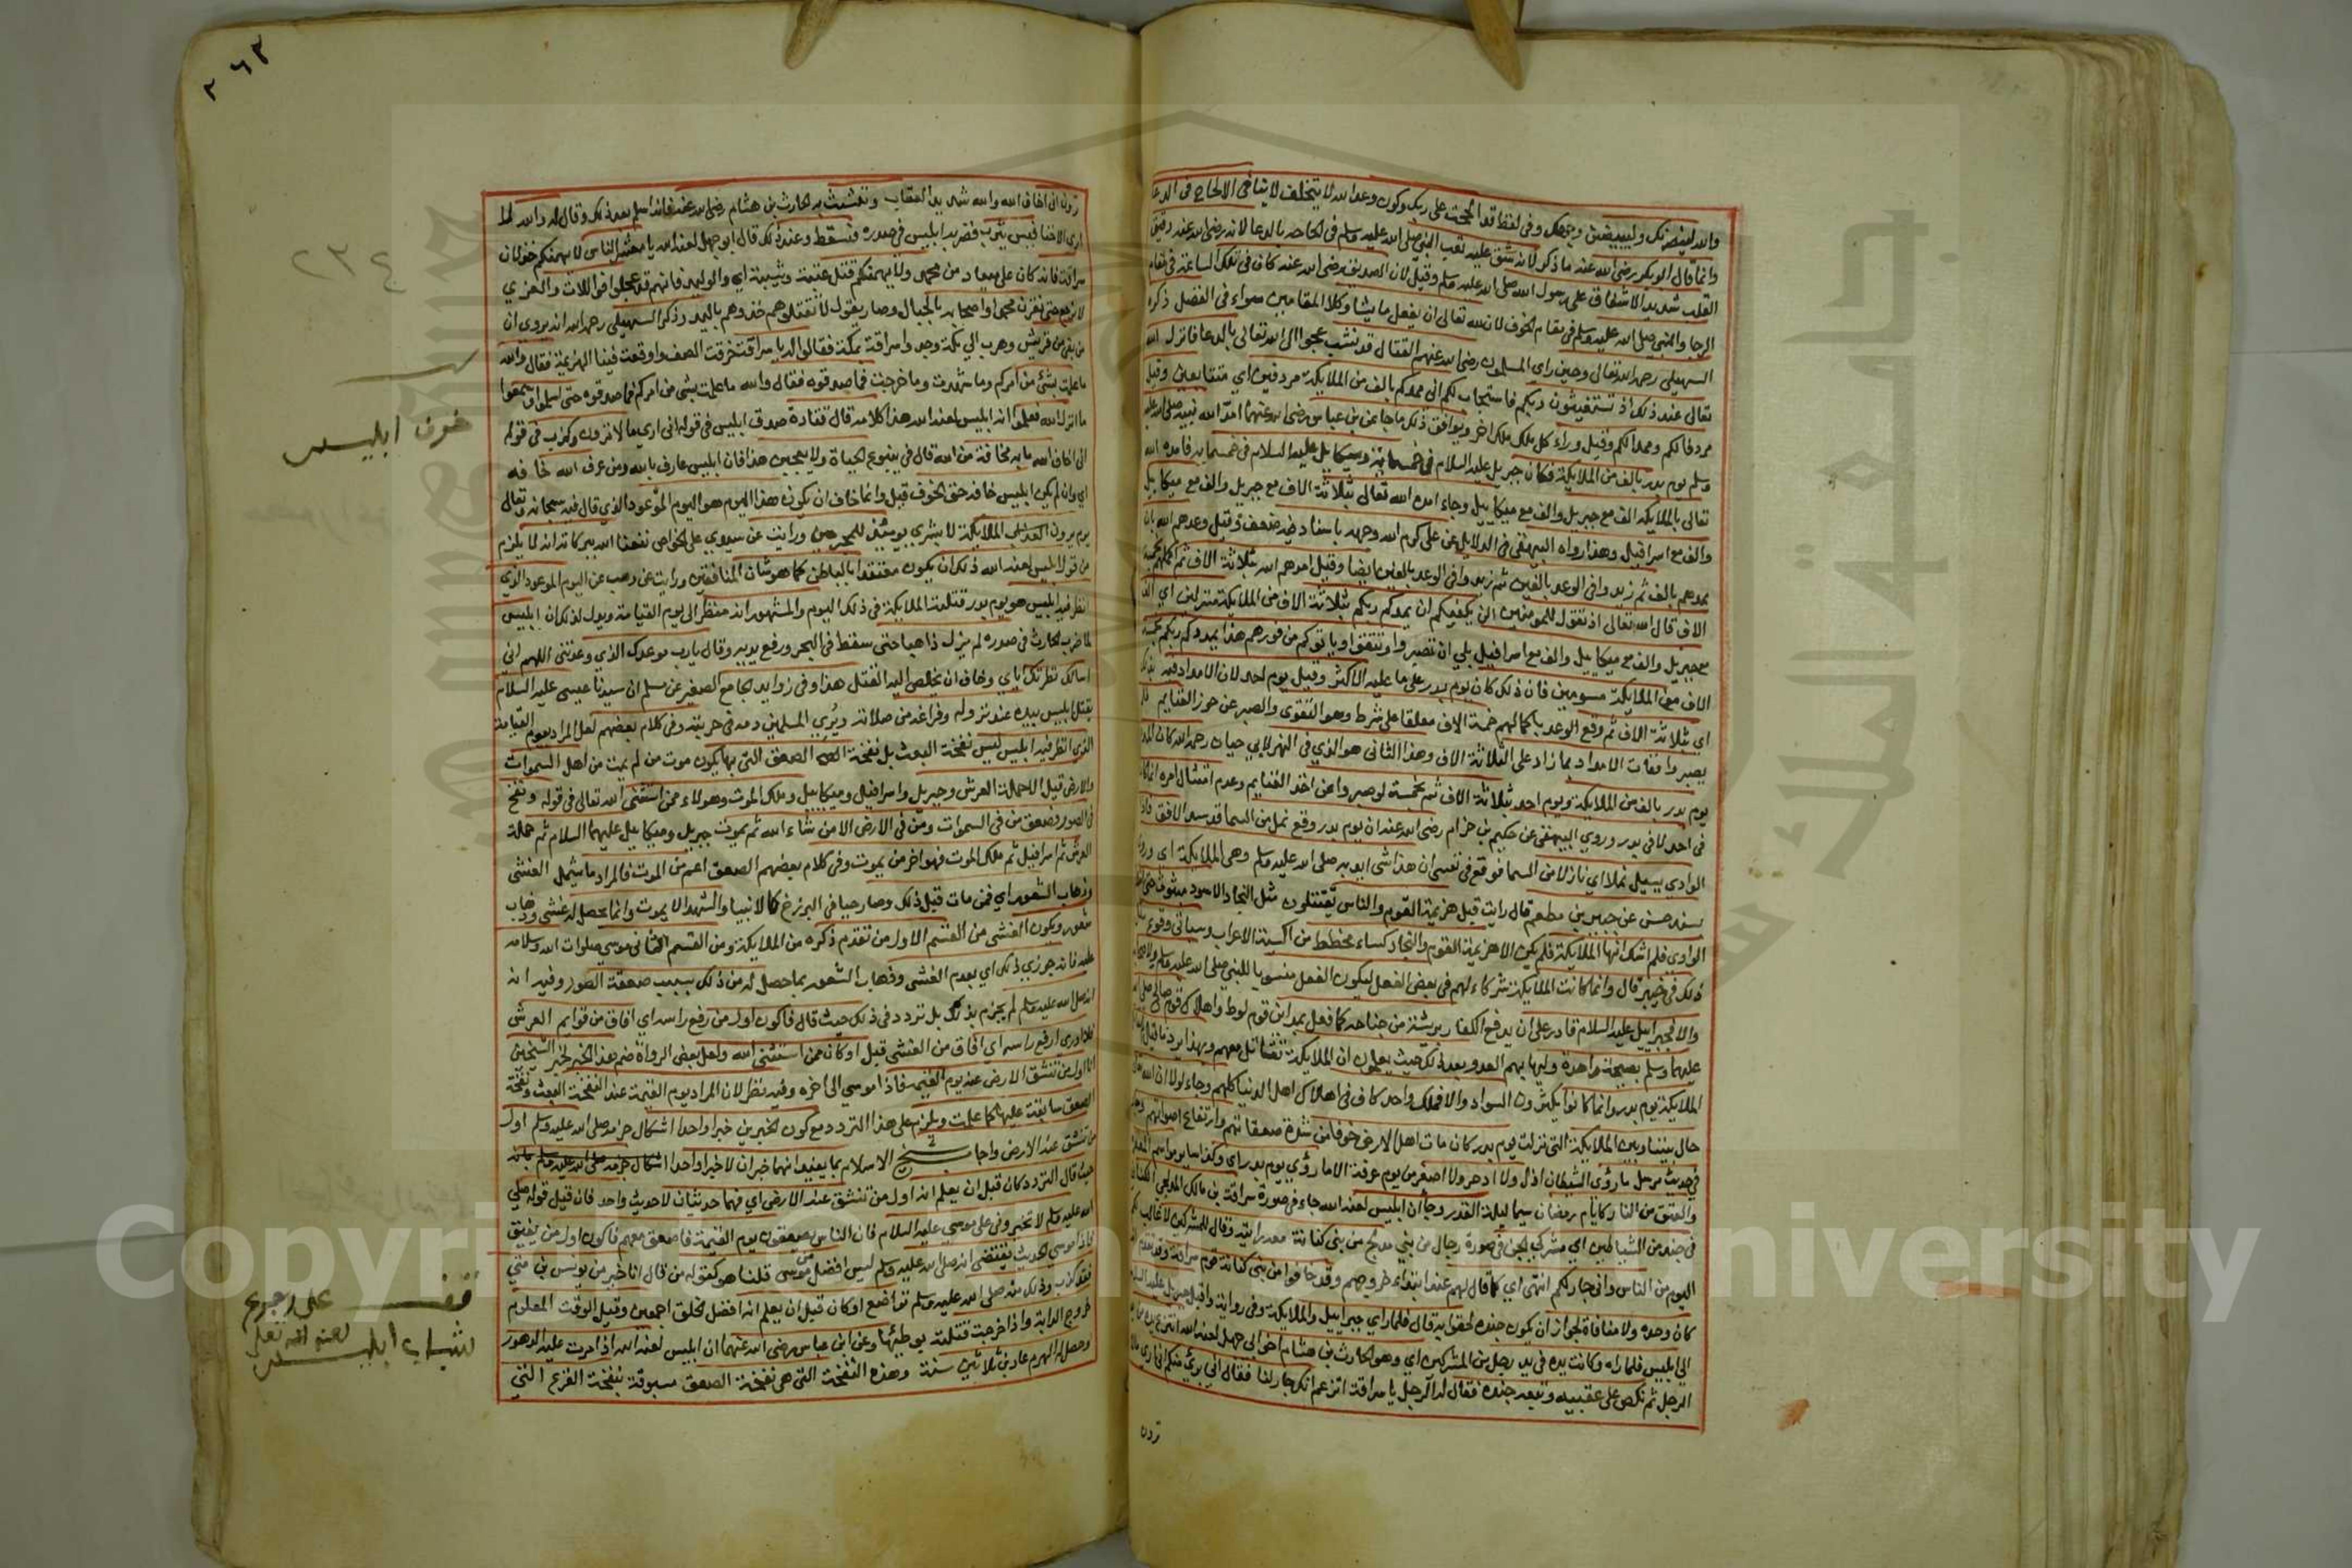 والله لينصرنك وليبيضن وجهك وفي لفظ قد الححت على ربك وكون وعد الله لا يتخلف لا ينافي الالحاح في الدعا
وانما قال ابو بكر رضي الله عنه ما ذكر لانه شق عليه تعب النبي صلى الله عليه وسلم في الحاحه بالدعا لانه رضي الله عنه رقيق
القلب شديد الاشفاق على رسول الله صلى الله عليه وسلم وقيل لان الصديق رضي الله عنه كان في تلك الساعة في مقام
الرجا والنبي صلى الله عليه وسلم في مقام الخوف لان لله تعالى ان يفعل ما يشا وكلا المقامين سواء في الفضل ذكره
السهيلي رحمه الله تعالى وحين راي المسلمون رضي الله عنهم القتال قد نشب عجوا الى الله تعالى بالدعا فانزل الله
تعالى عند ذلك اذ تستغيثون ربكم فاستجاب لكم اني ممدكم بالف من الملايكة مردفين اي متتابعين وقيل
مردفا لكم ومددا لكم وقيل وراء كل ملك ملك اخر ويوافق ذلك ما جا عن بن عباس رضي الله عنهما امد الله نبيه صلى الله عليه
وسلم يوم بدر بالف من الملايكة فكان جبريل عليه السلام في خمسماية وميكاييل عليه السلام في خمسماية فامده الله
تعالى بالملايكة الف مع جبريل والف مع ميكاييل وجاء امده الله تعالى بثلاثة الاف مع جبريل والف مع ميكاييل
والف مع اسرافيل وهذا رواه البيهقي في الدلايل عن علي كرم الله وجهه باسناد فيه ضعف وقيل وعدهم الله بان
يمدهم بالف ثم زيدوا في الوعد بالفين ثم زيدوا في الوعد بالفين ايضا وقيل امدهم الله بثلاثة الاف ثم اكملهم خمسة
الاف قال الله تعالى اذ تقول للمومنين الن يكفيكم ان يمدكم ربكم بثلاثة الاف من الملايكة منزلين اي الف
مع جبريل والف مع ميكاييل والف مع اسرافيل بلي ان تصبروا وتتقوا وياتوكم من فورهم هذا يمددكم ربكم بخمسة
الاف من الملايكة مسومين فان ذلك كان يوم بدر على ما عليه الاكثر وقيل يوم احد لان الامداد فيه
اي بثلاثة الاف ثم وقع الوعد باكمالهم خمسة الاف معلقا على شرط وهو التقوى والصبر عن حوز الغنايم فلم
يصبروا ففات الامداد بما زاد على الثلاثة الاف وهذا الثاني هو الذي في النهر لابي حيان رحمه الله كان المدد
يوم بدر بالف من الملايكة ويوم احد بثلاثة الاف ثم بخمسة لو صبروا عن اخذ الغنايم وعدم امتثال امره
في احد لا في بدر وروي البيهقي عن حكيم بن حزام رضي الله عنه ان يوم بدر وقع نمل من السما قد سد الافق فاذا
الوادي يسيل نملا اي نازلا من السما فوقع في نفسي ان هذا شي ايد به صلى الله عليه وسلم وهي الملايكة اي وروي
بسند حسن عن جبير بن مطعم قال رايت قبل هزيمة القوم والناس يقتتلون مثل النجاد الاسود مبثوث حتى امتلا
الوادي فلم اشك انها الملايكة فلم يكن الا هزيمة القوم والنجاد كساء مخطط من اكسية الاعراب وسياتي وقوع
ذلك في خيبر قال وانما كانت الملايكة شركاء لهم في بعض الفعل ليكون الفعل منسوبا للنبي صلى الله عليه وسلم ولاصحابه
والا فجبراييل عليه السلام قادر على ان يدفع الكفار بريشة من جناحه كما فعل بمداين قوم لوط واهلاك قوم صالح صلى الله
عليهما وسلم بصيحة واحدة وليهابهم العدو بعد ذلك حيث يعلمون ان الملايكة تقاتل معهم وبهذا يرد ما قيل
الملايكة يوم بدر وانما كانوا يكثرون السواد والا فملك واحد كاف في اهلاك اهل الدنيا كلهم وجاء لولا ان الله تعالى
حال بيننا وبين الملايكة التي نزلت يوم بدر كان مات اهل الارض خوفا من شدة صعقاتهم وارتفاع اصواتهم وجاء
في حديث مرسل ما رؤي الشيطان اذل ولا ادحر ولا اصغر من يوم عرفة الا ما رؤي يوم بدر اي وكذا ساير مواسم المغفرة
والعتق من النار كايام رمضان سيما ليلة القدر وجا ان ابليس لعنه الله جاء في صورة سراقة بن مالك المدلجي الكناني
في جند من الشياطين اي مشركي الجن في صورة رجال من بني مدلج من بني كنانة معه رايته وقال للمشركين لا غالب لكم
اليوم من الناس واني جار لكم انتهى اي كما قال لهم عند ابتداء خروجهم وقد خافوا من بني كنانة قوم سراقة وقد تقدم
كان وحده ولا منافاة لجواز ان يكون جنده لحقوا به قال فلما راي جبراييل والملايكة وفي رواية واقبل جبريل عليه السلام
الي ابليس فلما راه وكانت يده في يد رجل من المشركين اي وهو الحارث بن هشام اخو ابي جهل لعنه الله انتزع يده من يد
الرجل ثم نكص على عقبيه وتبعه جنده فقال له الرجل يا سراقة اتزعم انك جار لنا فقال اني بريء منكم اني اري ما لا
ترون
٢٦٣
٢٣٤
ترون اني اخاف الله والله شديد العقاب وتشبث به الحارث بن هشام رضي الله عنه فانه اسلم بعد ذلك وقال له والله لا
اري الا خفافيش يثرب فضربه ابليس في صدره فسقط وعند ذلك قال ابو جهل لعنه الله يا معشر الناس لا يهمنكم خذلان
سراقة فانه كان على ميعاد من محمد ولا يهمنكم قتل عتبة وشيبة اي والوليد فانهم قد عجلوا فواللات والعزي
لا نرجع حتى نقرن محمدا واصحابه بالجبال وصار يقول لا تقتلوهم خذوهم باليد وذكر السهيلي رحمه الله انه يروي ان
من بقي من قريش وهرب الي مكة وجدوا سراقة بمكة فقالوا له يا سراقة خرقت الصف واوقعت فينا الهزيمة فقال والله
ما علمت بشئ من امركم وما شهدت وما خرجت فما صدقوه فقال والله ما علمت بشي من امركم فما صدقوه حتى اسلموا وسمعوا
ما انزل الله فعلموا انه ابليس لعنه الله هذا كلامه قال قتادة صدق ابليس في قوله اني اري ما لا ترون وكذب في قوله
اني اخاف الله ما به مخافة من الله قال في ينبوع الحياة ولا يعجبني هذا فان ابليس عارف بالله ومن عرف الله خافه
اي وان لم يكن ابليس خافه حق الخوف قيل وانما خاف ان يكون هذا اليوم هو اليوم الموعود الذي قال فيه سبحانه وتعالى
يوم يرون الملايكة لا بشري يومئذ للمجرمين ورايت عن سيدي علي الخواص نفعنا الله ببركاته انه لا يلزم
من قول ابليس لعنه الله ذلك ان يكون معتقدا بالباطن كما هو شان المنافقين ورايت عن وهب عن اليوم الموعود الذي
انظر فيه ابليس هو يوم بدر قتلته الملايكة في ذلك اليوم والمشهور انه منظر الى يوم القيامة ويدل لذلك ان ابليس
لما ضرب الحارث في صدره لم يزل ذاهبا حتى سقط في البحر ورفع يديه وقال يا رب موعدك الذي وعدتني اللهم اني
اسالك نظرتك اياي وخاف ان يخلص اليه القتل هذا وفي زوايد الجامع الصغير عن مسلم ان سيدنا عيسى عليه السلام
يقتل ابليس بيده عند نزوله وفراغه من صلاته ويُري المسلمين دمه في حربته وفي كلام بعضهم لعل المراد بيوم القيامة
الذي انظر فيه ابليس ليس نفخة البعث بل نفخة الصعق التي بها يكون موت من لم يمت من اهل السموات
والارض قيل الا حملة العرش وجبريل واسرافيل وميكاييل وملك الموت وهولاء ممن استثنى الله تعالى في قوله ونفخ
في الصور فصعق من في السموات ومن في الارض الا من شاء الله ثم يموت جبريل وميكاييل عليهما السلام ثم حملة
العرش ثم اسرافيل ثم ملك الموت فهو اخر من يموت وفي كلام بعضهم الصعق اعم من الموت فالمراد ما يشمل الغشي
وذهاب الشعور اي فمن مات قبل ذلك وصار حيا في البرزخ كالانبيا والشهدا لا يموت وانما يحصل له غشي وذهاب
شعور ويكون الغشي من القسم الاول من تقدم ذكره من الملايكة ومن القسم الثاني موسي صلوات الله وسلامه
عليه فانه جوزي بذلك اي بعدم الغشي وذهاب الشعور بما حصل له من ذلك بسبب صعقة الطور وفيه انه
انه صلى الله عليه وسلم لم يجزم بذلك بل تردد في ذلك حيث قال فاكون اول من رفع راسه اي افاق من قوايم العرش
فلا ادري ارفع راسه اي افاق من الغشي قبل او كان ممن استثنى الله ولعل بعض الرواة ضم هذا الخبر لخبر الشيخين
انا اول من تنشق الارض عنه يوم القيمة فاذا موسي الى اخره وفيه نظر لان المراد يوم القيمة عند النفخة البعث ونفخة
الصعق سابقة عليها كما علمت ويلزم على هذا التردد مع كون الخبرين خبرا واحدا اشكال جزمه صلى الله عليه وسلم اول
من تنشق عنه الارض واجاب شيخ الاسلام بما يفيد انهما خبران لا خبرا واحدا بانه
حيث قال التردد كان قبل ان يعلم انه اول من تنشق عنه الارض اي فهما حديثان لا حديث واحد فان قيل قوله صلى
الله عليه وسلم لا تخيروني على موسي عليه السلام فان الناس يصعقون يوم القيمة فاصعق معهم فاكون اول من يفيق
فاذا موسي الحديث يقتضي انه صلى الله عليه وسلم ليس افضل من موسي قلنا هو كقوله من قال انا خير من يونس بن متي
فقد كذب وذلك منه صلى الله عليه وسلم تواضع او كان قبل ان يعلم انه افضل الخلق اجمعين وقيل الوقت المعلوم
خروج الدابة واذا خرجت قتلته بوطئها وعن ابن عباس رضي الله عنهما ان ابليس لعنه الله اذا مرت عليه الدهور
وحصل له الهرم عاد بن ثلاثين سنة وهذه النفخة التي هي نفخة الصعق مسبوقة بنفخة الفزع التي
خوف ابليس
قف على رجوع
شباب ابليس لعنه الله تعالى
Copyright © King Saud University
جامعة الملك سعود